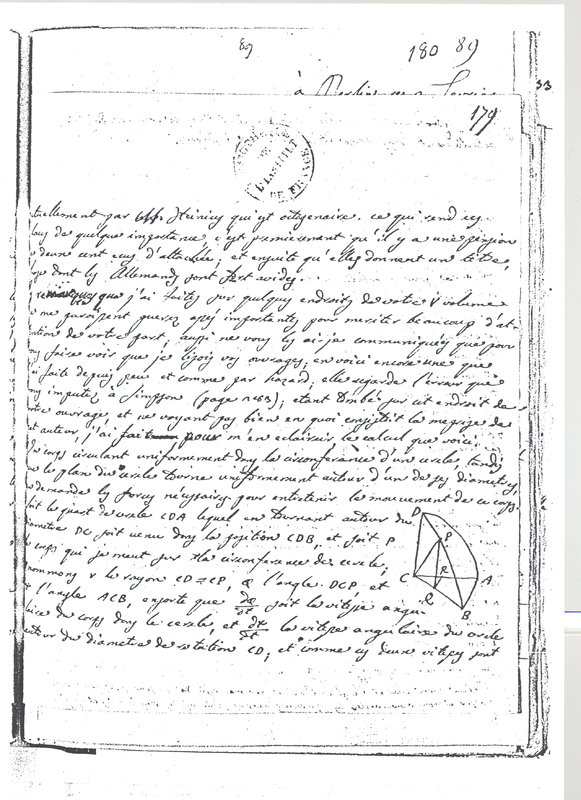 89
180 89
33
à Berlin
179
BIBLIOTHEQUE DE L'INSTITUT DE FRANCE
par Mr. Heinius qui est octogenaire. ce qui rend ces
de quelque importance c'est premierement qu'il y a une pension
cent ecus d'attachée; et ensuite qu'elles donnent un titre,
dont les Allemands sont fort avides.
que j'ai faites sur quelques endroits de votre V volume
ne me paroissent guerez assez importantes pour meriter beaucoup d'at-
tention de votre part, aussi ne vous les ai-je communiquées que pour
vous faire voir que je lisois vos ouvrages; en voici encore une que
j'ai faite depuis peu et comme par hazard; elle regarde l'erreur que
vous imputez à Simpson (page n 263); etant tombé sur cet endroit de
votre ouvrage, et ne voyant pas bien en quoi consistoit la meprise de
cet auteur, j'ai fait pour m'en eclaircir le calcul que voici.
Un corps circulant uniformement dans la circonference d'un cercle, tandis
que le plan du cercle tourne uniformement autour d'un de ses diametres,
on demande les forces necessaires pour entretenir le mouvement de ce corps.
Soit le quart de cercle CDA lequel en tournant autour du
diametre DC soit venu dans la position CDB, et soit P
le corps qui se meut sur la circonference du cercle;
nommons r le rayon CD = CP, l'angle DCP, et
l'angle ACB, ensorte que soit la vitesse angu-
laire du corps dans le cercle, et la vitesse angulaire du cercle
autour du diametre de rotation CD; et comme ces deux vitesses sont
D
P
C
R
A
Q
B